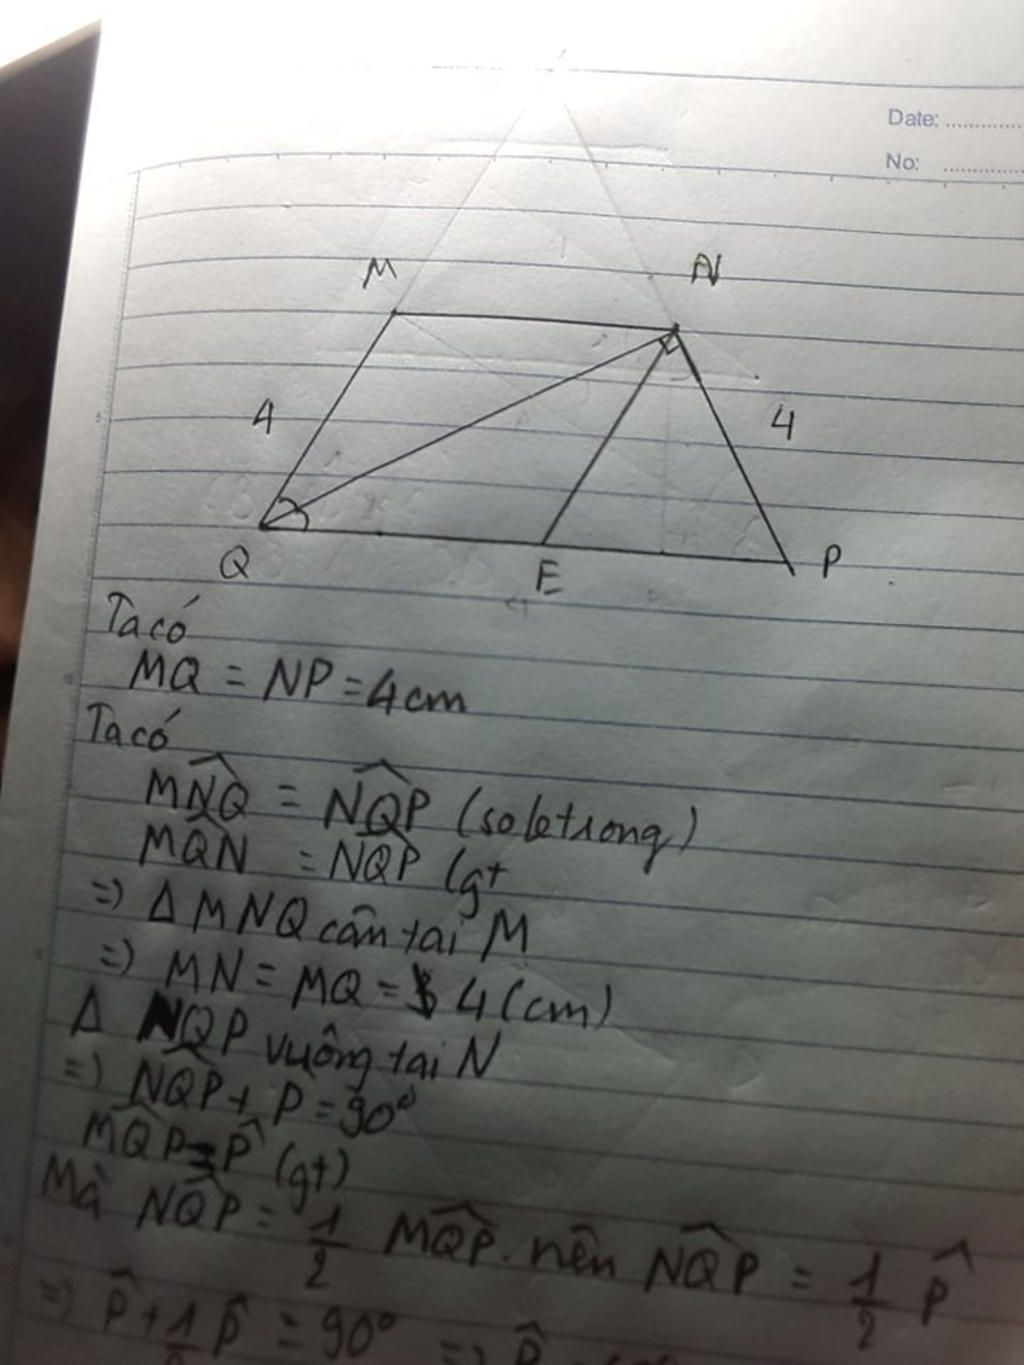 Date: ............
No: ............
M
N
4
4
Q
E
P
Ta có
MQ = NP = 4cm
Ta có
MN̂Q = NQ̂P (so le trong)
MQ̂N = NQ̂P (gt
=) Δ MNQ cân tại M
=) MN = MQ = 4 (cm)
Δ NQP vuông tại N
=) NQ̂P + P̂ = 90°
MQ̂P = P̂ (gt)
Mà NQ̂P = 1/2 MQ̂P. nên NQ̂P = 1/2 P̂
=) P̂ + 1/2 P̂ = 90° =) P̂